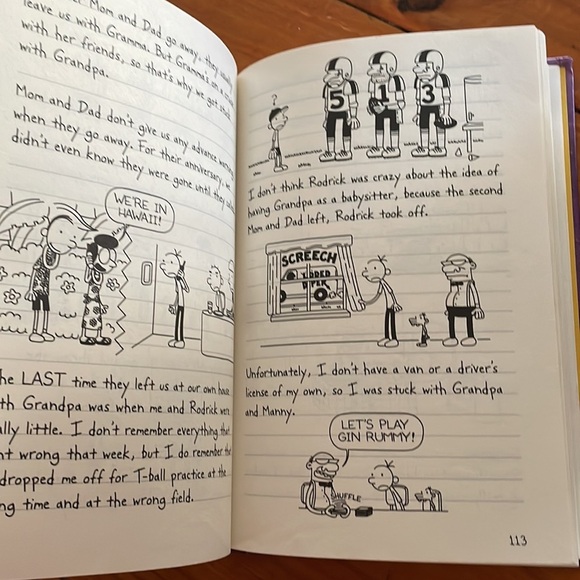 Mom and Dad go away, they
leave us with Gramma. But Gramma's on a
with her friends, so that's why we got stuck
with Grandpa.
Mom and Dad don't give us any advance warning
when they go away. For their anniversary, we
didn't even know they were gone until they
WE'RE IN
HAWAII!
he LAST time they left us at our own house
th Grandpa was when me and Rodrick were
ally little. I don't remember everything that
nt wrong that week, but I do remember
dropped me off for T-ball practice at the
ng time and at the wrong field.
?
5 1 3
I don't think Rodrick was crazy about the idea of
having Grandpa as a babysitter, because the second
Mom and Dad left, Rodrick took off.
SCREECH
Unfortunately, I don't have a van or a driver's
license of my own, so I was stuck with Grandpa
and Manny.
LET'S PLAY
GIN RUMMY!
113